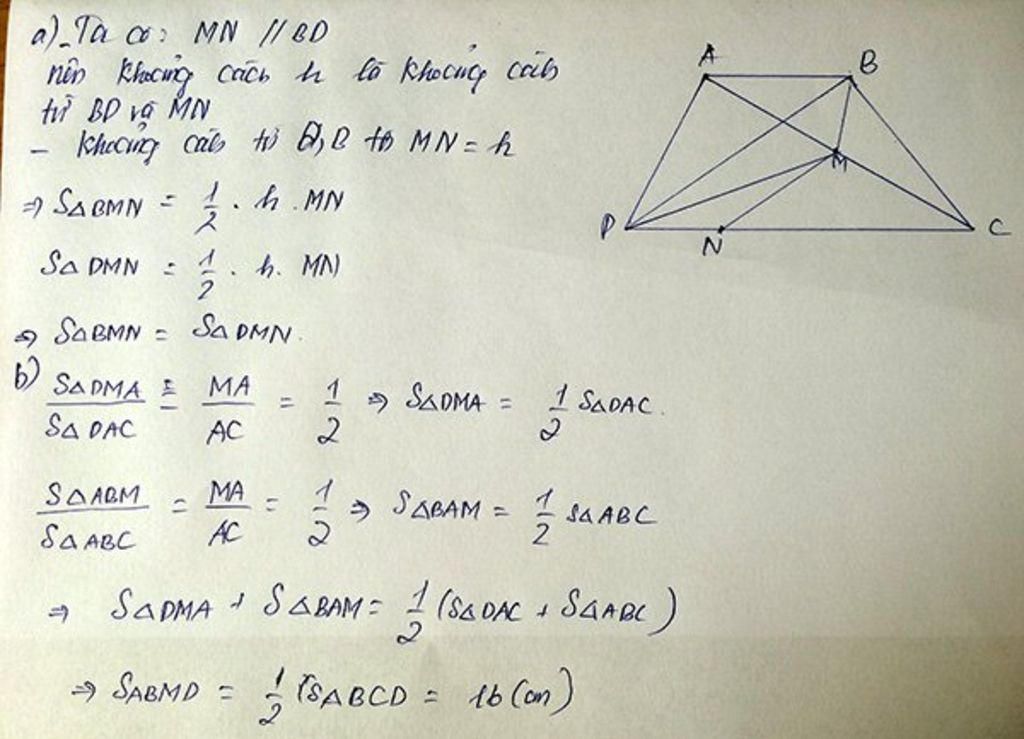 a)-Ta có: MN // BD
nên khoảng cách h là khoảng cách
từ BD và MN
- khoảng cách từ D,B tới MN = h
⇒ SΔBMN = 1/2 . h . MN
SΔDMN = 1/2 . h . MN
⇒ SΔBMN = SΔDMN.
b) SΔDMA/SΔDAC = MA/AC = 1/2 ⇒ SΔDMA = 1/2 SΔDAC.
SΔABM/SΔABC = MA/AC = 1/2 ⇒ SΔBAM = 1/2 SΔABC
⇒ SΔDMA + SΔBAM = 1/2 (SΔDAC + SΔABC)
⇒ SABMD = 1/2 SABCD = 16 (cm)
A
B
M
D
N
C